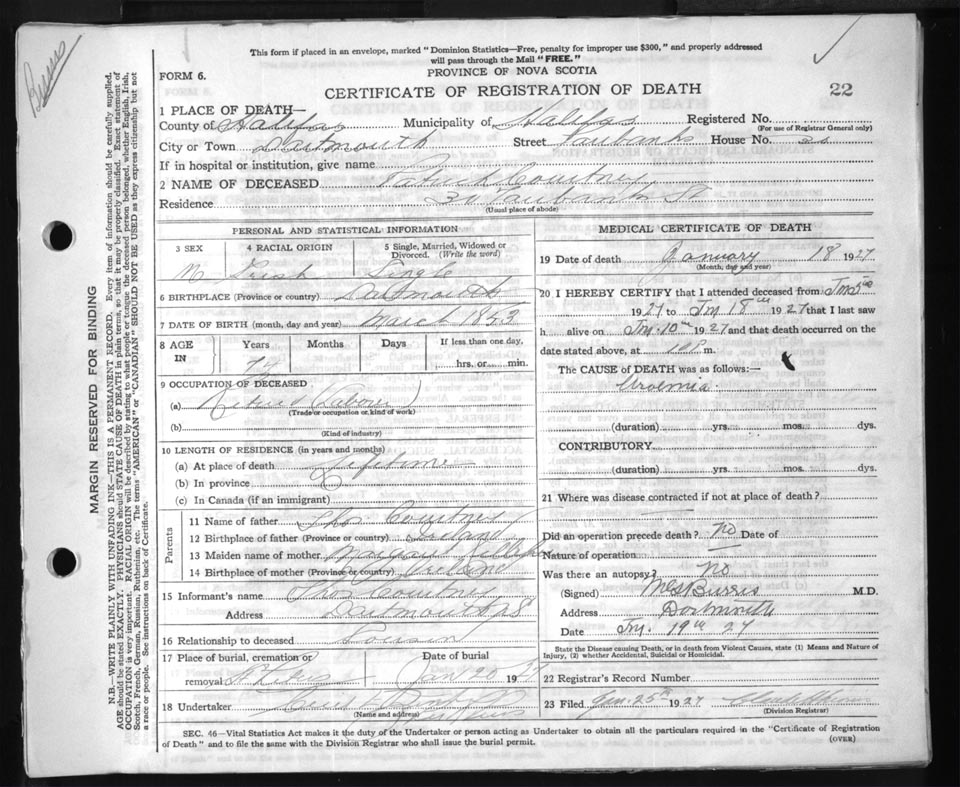 This form if placed in an envelope, marked "Dominion Statistics—Free, penalty for improper use $300," and properly addressed
will pass through the Mail "FREE."
FORM 6.
PROVINCE OF NOVA SCOTIA
CERTIFICATE OF REGISTRATION OF DEATH
22
1 PLACE OF DEATH—
County of Halifax Municipality of Halifax Registered No.
(For use of Registrar General only)
City or Town Dartmouth Street Fairbanks House No. 30
If in hospital or institution, give name
2 NAME OF DECEASED Patrick Courtney
Residence 30 Fairbanks St
(Usual place of abode)
PERSONAL AND STATISTICAL INFORMATION
3 SEX 4 RACIAL ORIGIN 5 Single, Married, Widowed or Divorced. (Write the word)
M Irish Single
6 BIRTHPLACE (Province or country) Dartmouth
7 DATE OF BIRTH (month, day and year) March 1853
8 AGE IN Years Months Days If less than one day,
hrs. or min.
9 OCCUPATION OF DECEASED
(a) Retired (Labourer)
(Trade or occupation or kind of work)
(b)
(Kind of industry)
10 LENGTH OF RESIDENCE (in years and months)
(a) At place of death Lifetime
(b) In province
(c) In Canada (if an immigrant)
Parents
11 Name of father Thos Courtney
12 Birthplace of father (Province or country) Ireland
13 Maiden name of mother Margaret
14 Birthplace of mother (Province or country) Ireland
15 Informant's name Thos Courtney
Address Dartmouth NS
16 Relationship to deceased Cousin
17 Place of burial, cremation or Date of burial
removal Jan 20 1927
18 Undertaker
(Name and address)
MEDICAL CERTIFICATE OF DEATH
19 Date of death January 18 1927
(Month, day and year)
20 I HEREBY CERTIFY that I attended deceased from Jan 5th
1927 to Jan 18th 1927 that I last saw
h alive on Jan 10th 1927 and that death occurred on the
date stated above, at m.
The CAUSE of DEATH was as follows:—
Uroemia
(duration) yrs. mos. dys.
CONTRIBUTORY
(duration) yrs. mos. dys.
21 Where was disease contracted if not at place of death?
Did an operation precede death? No Date of
Nature of operation
Was there an autopsy? No
(Signed) Burris M.D.
Address Dartmouth
Date Jany. 19th 27
State the Disease causing Death, or in death from Violent Causes, state (1) Means and Nature of
Injury, (2) whether Accidental, Suicidal or Homicidal.
22 Registrar's Record Number
23 Filed Jan. 25th 1927
(Division Registrar)
SEC. 46—Vital Statistics Act makes it the duty of the Undertaker or person acting as Undertaker to obtain all the particulars required in the "Certificate of Registration
of Death" and to file the same with the Division Registrar who shall issue the burial permit.
(OVER)
MARGIN RESERVED FOR BINDING
N.B.—WRITE PLAINLY WITH UNFADING INK—THIS IS A PERMANENT RECORD. Every item of information should be carefully supplied.
AGE should be stated EXACTLY. PHYSICIANS should STATE CAUSE OF DEATH in plain terms, so that it may be properly classified. Exact statement of
OCCUPATION is very important. RACIAL ORIGIN will be described by stating to what people or tongue the deceased person belonged, whether English, Irish,
Scotch, French, German, Russian, Ruthenian, etc. The terms "AMERICAN" or "CANADIAN" SHOULD NOT BE USED as they express citizenship but not
a race or people. See instructions on back of Certificate.